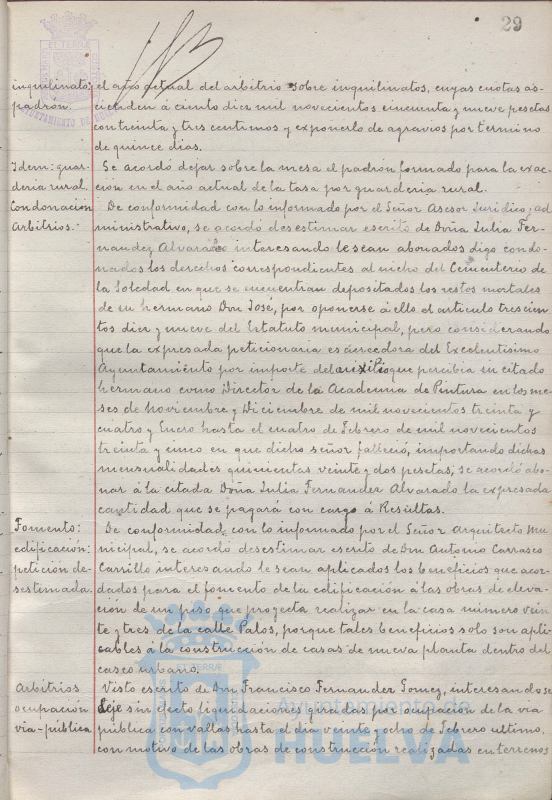 29
inquilinato: el año actual del arbitrio sobre inquilinatos, cuyas cuotas as-
padrón. cienden á ciento diez mil novecientos cincuenta y nueve pesetas
con treinta y tres centimos y exponerlo de agravios por termino
de quince dias.
Idem: guar- Se acordó dejar sobre la mesa el padrón formado para la exac-
deria rural. ción en el año actual de la tasa por guarderia rural.
Condonación De conformidad con lo informado por el Señor Asesor Juridico, ad-
Arbitrios. ministrativo, se acordó desestimar escrito de Doña Julia Fer-
nandez Alvarado interesando le sean abonados digo condo-
nados los derechos correspondientes al nicho del Cementerio de
la Soledad en que se encuentran depositados los restos mortales
de su hermano Don José, por oponerse á ello el articulo trescien
tos diez y nueve del Estatuto municipal, pero considerando
que la expresada peticionaria es acreedora del Excelentisimo
Ayuntamiento por importe del auxilio que percibia su citado
hermano como Director de la Academia de Pintura en los me-
ses de Noviembre y Diciembre de mil novecientos treinta y
cuatro y Enero hasta el cuatro de Febrero de mil novecientos
treinta y cinco en que dicho señor falleció, importando dichas
mensualidades quinientas veinte y dos pesetas, se acordó abo-
nar á la citada Doña Julia Fernandez Alvarado la expresada
cantidad que se pagará con cargo á Resultas.
Fomento: De conformidad con lo informado por el Señor Arquitecto Mu-
edificación: nicipal, se acordó desestimar escrito de Don Antonio Carrasco
petición de- Carrillo interesando le sean aplicados los beneficios que acor-
sestimada. dados para el fomento de la edificación á las obras de eleva-
cion de un piso que proyecta realizar en la casa número vein
te y tres de la calle Palos, porque tales beneficios solo son apli-
cables á la construcción de casas de nueva planta dentro del
casco urbano.
Arbitrios Visto escrito de Don Francisco Fernandez Gomez, interesando se
ocupación deje sin efecto liquidaciones giradas por ocupacion de la via
via-pública pública con vallas hasta el dia veinte y ocho de Febrero ultimo,
con motivo de las obras de construcción realizadas en terrenos
Ayuntamiento de
HUELVA